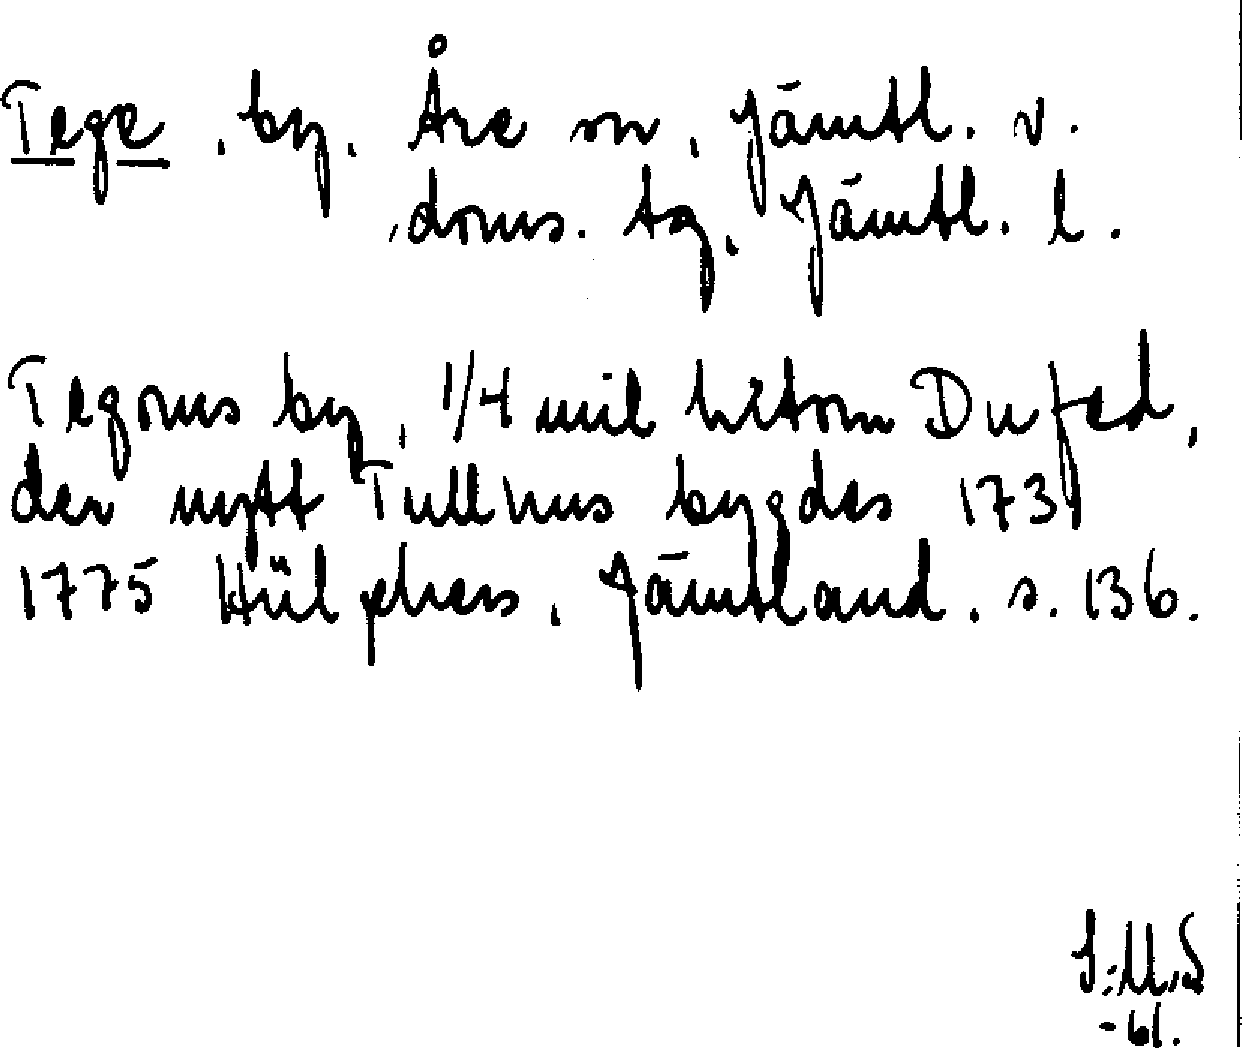 Tege, by, Åre sn, Jämtl. v.
doms. tg, Jämtl. l.
Tegoms by, 1/4 mil bitom Dufed,
der nytt Tullhus bygdes 173
1775 Hülphers, Jämtland. s. 136.
J:M.S
-61.